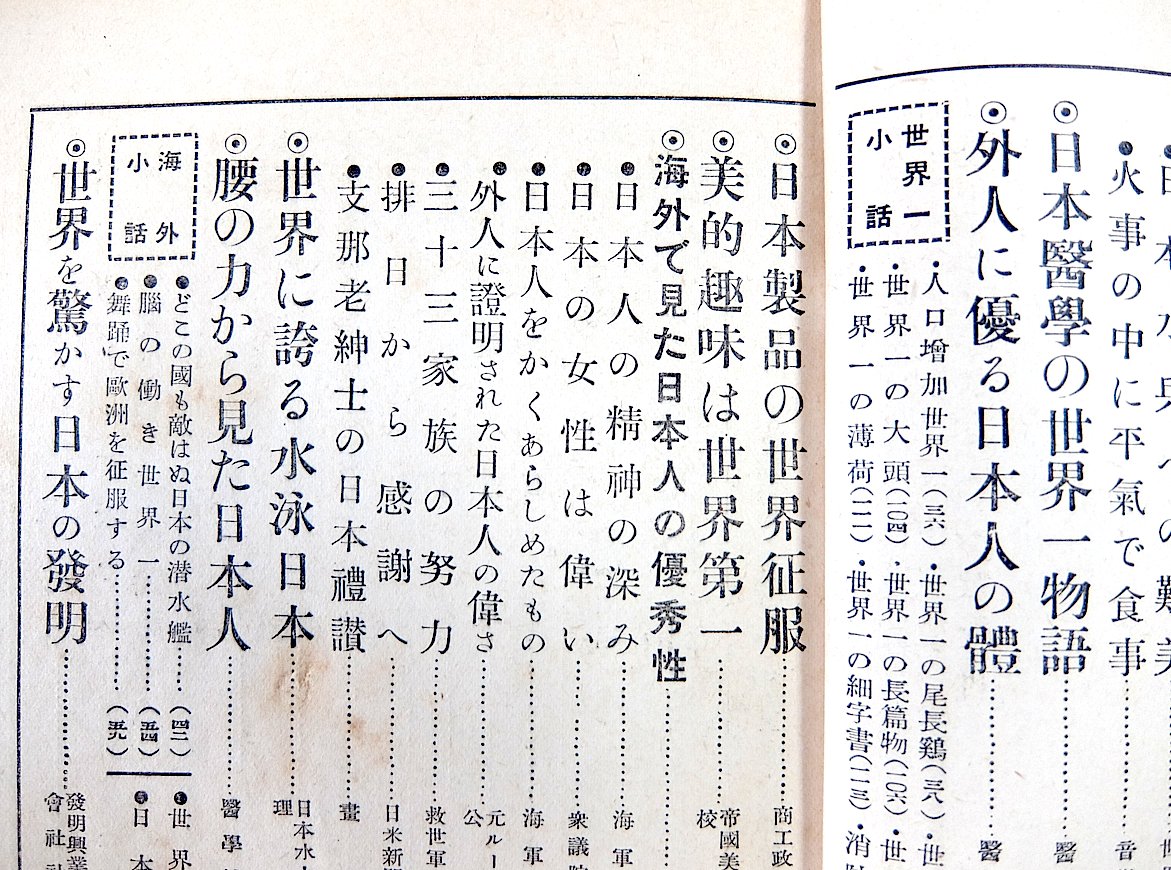 火事の中に平氣で食事
日本醫學の世界一物語
醫
外人に優る日本人の體
醫
世界一
小話
・人口增加世界一(三六)・世界一の尾長鷄(三八)・世
・世界一の大頭(一〇四)・世界一の長篇物(一〇六)・世
・世界一の薄荷(一一一)・世界一の細字書(一一三)・消
◉日本製品の世界征服
商工政
◉美的趣味は世界第一
帝國美
校
◉海外で見た日本人の優秀性
●日本人の精神の深み
海軍
●日本の女性は偉い
衆議院
●日本人をかくあらしめたもの
海軍
●外人に證明された日本人の偉さ
元ルー
公
●三十三家族の努力
救世軍
●排日から感謝へ
日米新
●支那老紳士の日本禮讃
畫
◉世界に誇る水泳日本
日本水
理
◉腰の力から見た日本人
醫學
海外
小話
●どこの國も敵はぬ日本の潜水艦(四二)
●腦の働き世界一(五四)
●舞踊で歐洲を征服する(五九)
●世界
●日本
◉世界を驚かす日本の發明
發明興業
會社